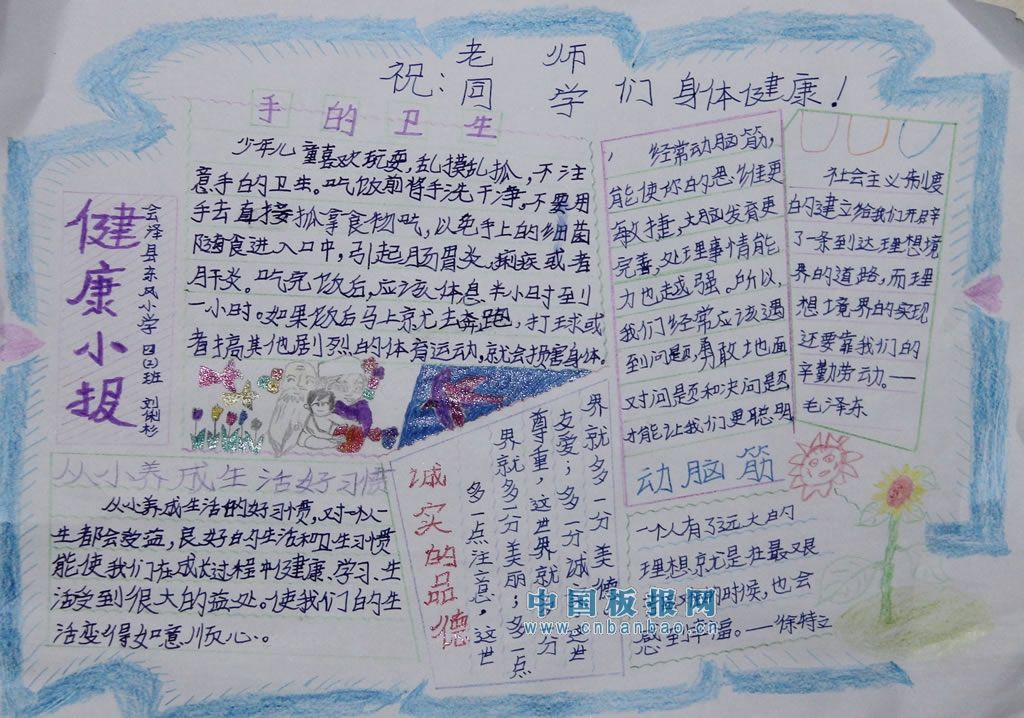 祝：老师
同学们身体健康！
手的卫生
少年儿童喜欢玩耍，乱摸乱抓，不注
意手的卫生。吃饭前皆手洗干净。不要用
手去直接抓拿食物吃，以免手上的细菌
随食进入口中，引起肠胃炎、痢疾或者
肝炎。吃完饭后，应该休息半小时到
一小时。如果饭后马上就去奔跑，打球或
者搞其他剧烈的体育运动，就会损害身体。
健康小报
会泽县东风小学 四(2)班 刘俐杉
从小养成生活好习惯
从小养成生活的好习惯，对一个人一
生都会受益，良好的生活和卫生习惯
能使我们在成长过程中健康、学习、生
活受到很大的益处。使我们的生
活变得如意顺心。
诚实的品德
界就多一分美德，
友爱；多一分诚实，这世
尊重，这世界就多一分
界就多一分美丽；多一点
多一点注意，这世
经常动脑筋，
能使你的思维更
敏捷，大脑发育更
完善，处理事情能
力也越强。所以，
我们经常应该遇
到问题，勇敢地面
对问题和决问题
才能让我们更聪明
动脑筋
社会主义制度
的建立给我们开辟
了一条到达理想境
界的道路，而理
想境界的实现
还要靠我们的
辛勤劳动。——
毛泽东
一个人有了远大的
理想就是在最艰
的时候，也会
感到幸福。——徐特立
中国板报网
www.cnbanbao.cn